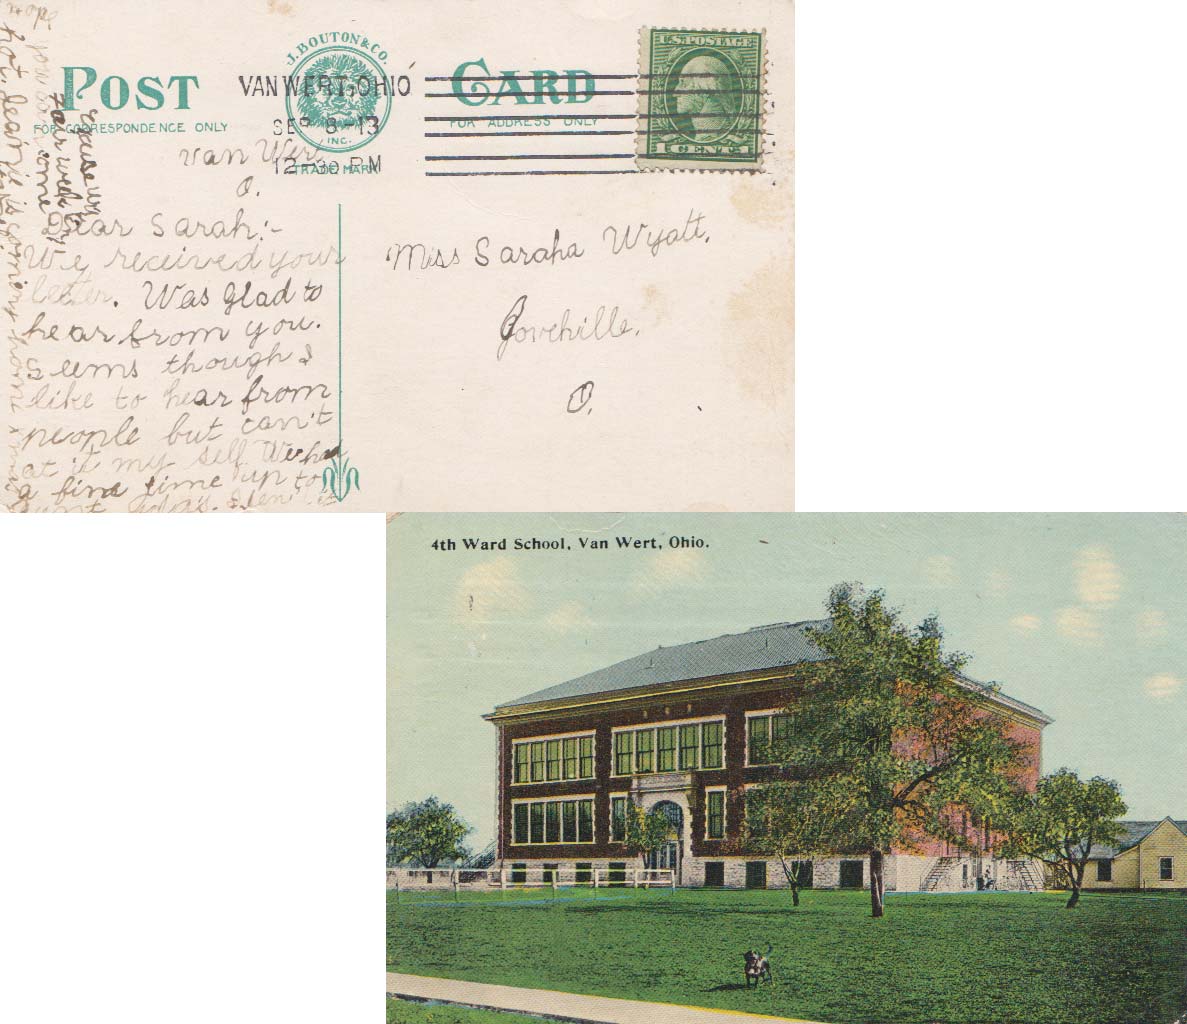 J. BOUTON & CO.
INC.
TRADE MARK
POST CARD
FOR CORRESPONDENCE ONLY
FOR ADDRESS ONLY
VAN WERT, OHIO
SEP 8-13
12-30 PM
U.S. POSTAGE
1 CENT 1
Van Wert
O.
Dear Sarah:-
We received your
letter. Was glad to
hear from you.
Seems though I
like to hear from
people but can't
at it my self. We had
a fine time up to
Aunt
Hope you
come
is coming home
Miss Saraha Wyatt,
O.
4th Ward School, Van Wert, Ohio.